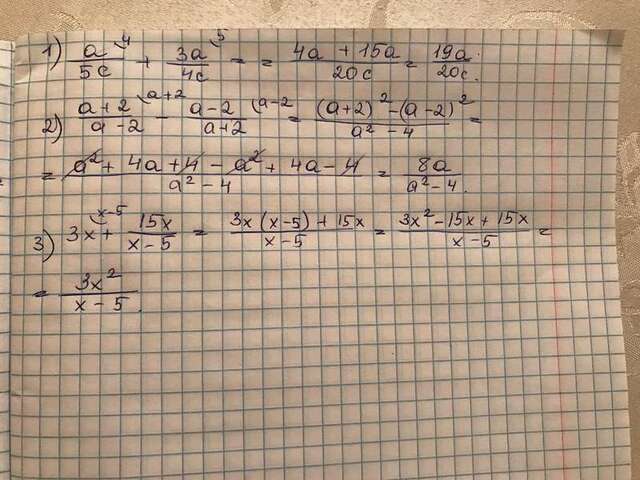 1) a/5c (4 + 3a/4c (5 = = (4a + 15a)/20c = 19a/20c.
2) (a+2)/(a-2) (a+2 - (a-2)/(a+2) (a-2 = ((a+2)² - (a-2)²)/(a² - 4) =
= (a² + 4a + 4 - a² + 4a - 4)/(a² - 4) = 8a/(a² - 4).
3) 3x (x-5 + 15x/(x-5) = (3x(x-5) + 15x)/(x-5) = (3x² - 15x + 15x)/(x-5) =
= 3x²/(x-5).